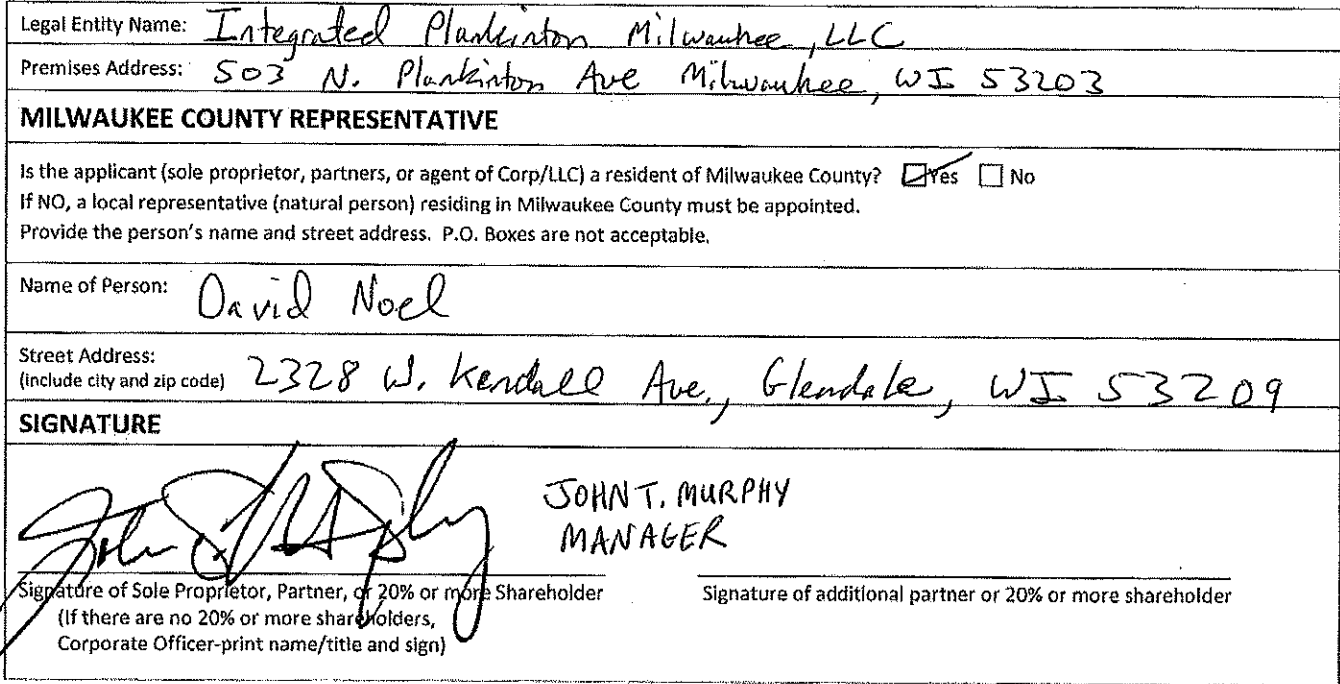 Legal Entity Name: Integrated Plankinton Milwaukee, LLC
Premises Address: 503 N. Plankinton Ave Milwaukee, WI 53203
MILWAUKEE COUNTY REPRESENTATIVE
Is the applicant (sole proprietor, partners, or agent of Corp/LLC) a resident of Milwaukee County? ☑ Yes ☐ No
If NO, a local representative (natural person) residing in Milwaukee County must be appointed.
Provide the person's name and street address. P.O. Boxes are not acceptable.
Name of Person: David Noel
Street Address:
(include city and zip code) 2328 W. Kendall Ave., Glendale, WI 53209
SIGNATURE
John T Murphy
JOHN T. MURPHY
MANAGER
Signature of Sole Proprietor, Partner, or 20% or more Shareholder
(If there are no 20% or more shareholders,
Corporate Officer-print name/title and sign)
Signature of additional partner or 20% or more shareholder